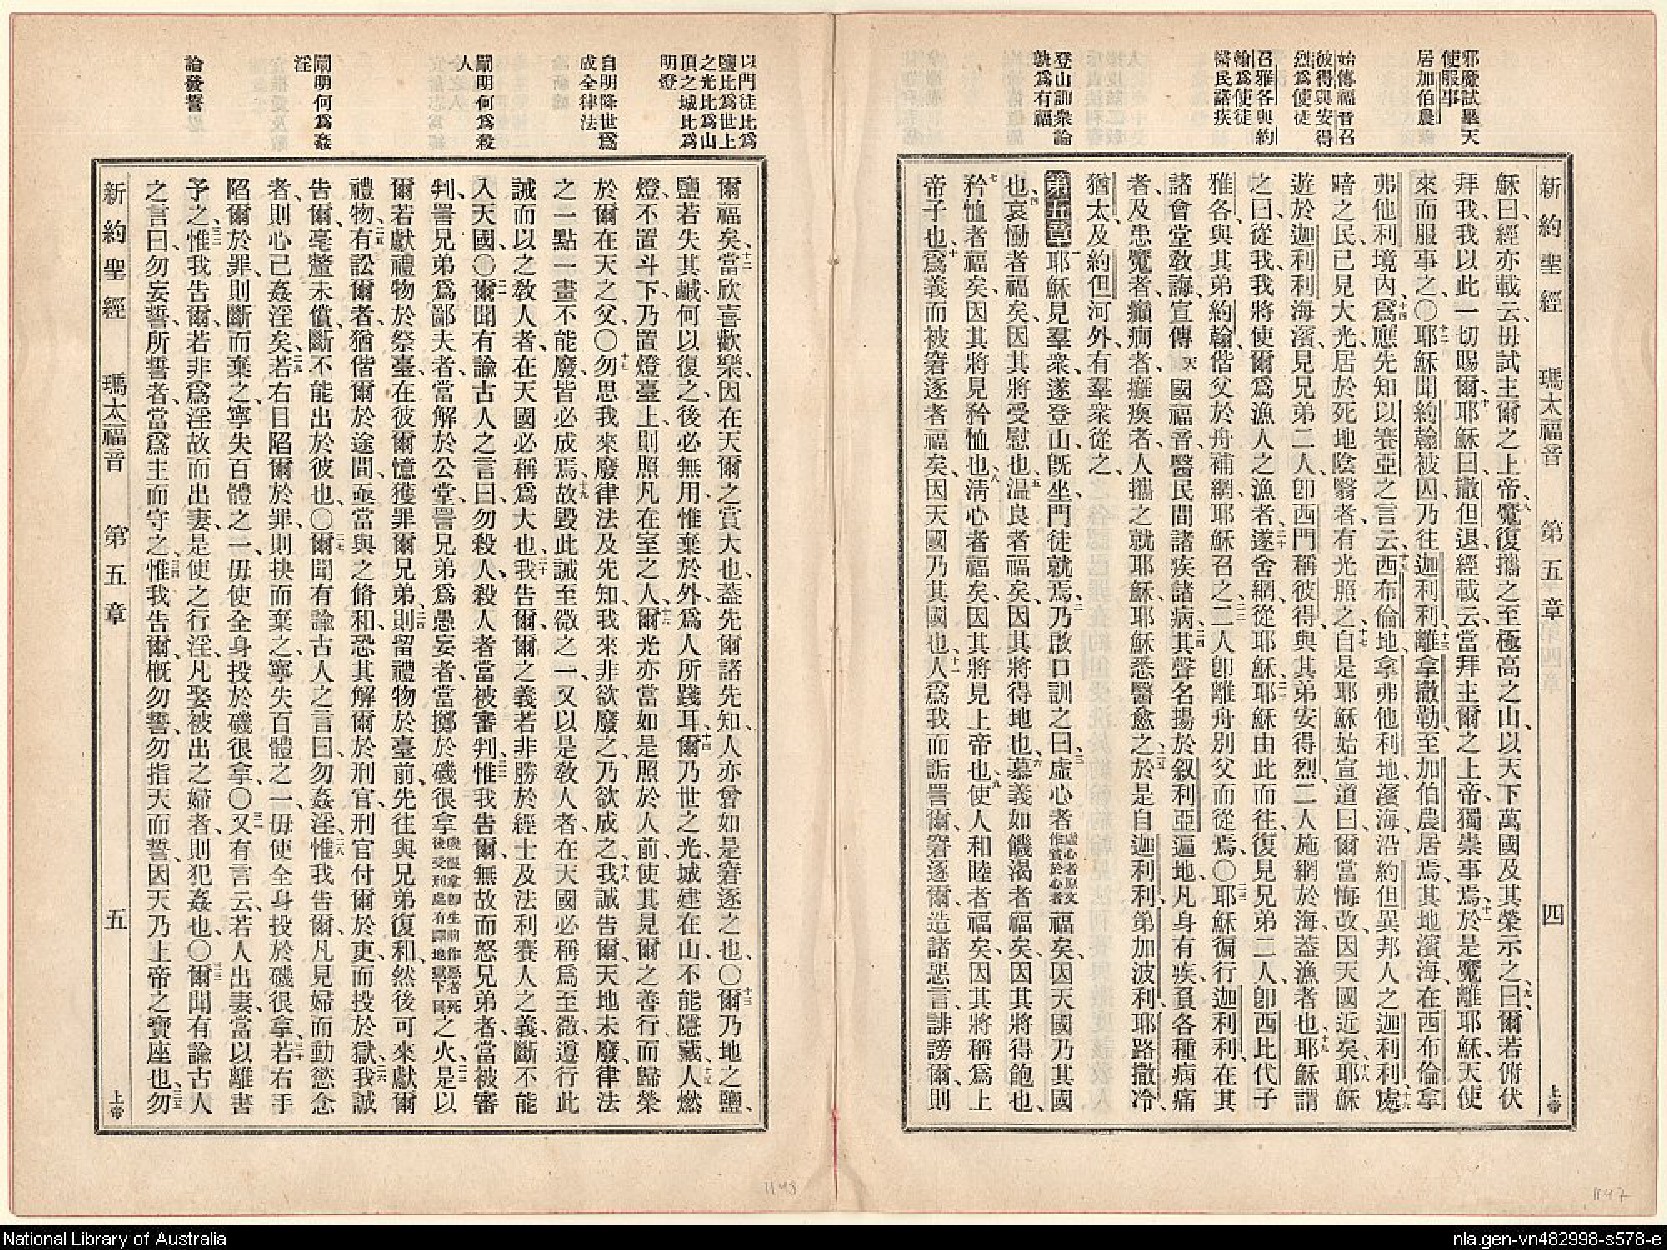 邪魔試畢天
使服事
居加伯農
始傳福音召
彼得與安得
烈爲使徒
召雅各與約
翰爲使徒
醫民諸疾
登山訓衆論
孰爲有福
新約聖經 瑪太福音 第五章 四 上帝
穌曰、經亦載云、毋試主爾之上帝、八魔復攜之至極高之山、以天下萬國及其榮示之、九曰、爾若俯伏
拜我、我以此一切賜爾、十耶穌曰、撒但退、經載云、當拜主爾之上帝、獨崇事焉、十一於是魔離耶穌、天使
來而服事之、〇十二耶穌聞約翰被囚、乃往迦利利、十三離拿撒勒、至加伯農居焉、其地濱海、在西布倫拿
弗他利境內、十四爲應先知以賽亞之言云、十五西布倫地、拿弗他利地、濱海沿約但、異邦人之迦利利、十六處
暗之民、已見大光、居於死地陰翳者、有光照之、十七自是耶穌始宣道曰、爾當悔改、因天國近矣、十八耶穌
遊於迦利利海濱、見兄弟二人、卽西門稱彼得、與其弟安得烈、二人施網於海、蓋漁者也、十九耶穌謂
之曰、從我、我將使爾爲漁人之漁者、二十遂舍網從耶穌、二一耶穌由此而往、復見兄弟二人、卽西比代子
雅各、與其弟約翰、偕父於舟補網、耶穌召之、二二二人卽離舟別父而從焉、〇二三耶穌徧行迦利利、在其
諸會堂敎誨、宣傳天國福音、醫民間諸疾諸病、二四其聲名揚於叙利亞遍地、凡身有疾、負各種病痛
者、及患魔者、癲癎者、癱瘓者、人攜之就耶穌、耶穌悉醫愈之、二五於是自迦利利、第加波利、耶路撒冷、
猶太、及約但河外、有羣衆從之、
第五章 一耶穌見羣衆、遂登山、旣坐、門徒就焉、二乃啟口訓之曰、三虛心者虛心者原文作貧於心者福矣、因天國乃其國
也、四哀慟者福矣、因其將受慰也、五温良者福矣、因其將得地也、六慕義如饑渴者福矣、因其將得飽也、
七矜恤者福矣、因其將見矜恤也、八淸心者福矣、因其將見上帝也、九使人和睦者福矣、因其將稱爲上
帝子也、十爲義而被窘逐者福矣、因天國乃其國也、十一人爲我而詬詈爾、窘逐爾、造諸惡言誹謗爾、則
以門徒比爲
鹽比爲世上
之光比爲山
頂之城比爲
明燈
自明降世爲
成全律法
闡明何爲殺
人
闡明何爲姦
淫
論發誓
爾福矣、十二當欣喜歡樂、因在天爾之賞大也、蓋先爾諸先知、人亦曾如是窘逐之也、〇十三爾乃地之鹽、
鹽若失其鹹、何以復之、後必無用、惟棄於外、爲人所踐耳、十四爾乃世之光、城建在山、不能隱藏、十五人燃
燈、不置斗下、乃置燈臺上、則照凡在室之人、十六爾光亦當如是照於人前、使其見爾之善行、而歸榮
於爾在天之父、〇十七勿思我來廢律法及先知、我來非欲廢之、乃欲成之、十八我誠告爾、天地未廢、律法
之一點一畫不能廢、皆必成焉、十九故毀此誡至微之一、又以是敎人者、在天國必稱爲至微、遵行此
誡而以之敎人者、在天國必稱爲大也、二十我告爾、爾之義、若非勝於經士及法利賽人之義、斷不能
入天國、〇二一爾聞有諭古人之言曰、勿殺人、殺人者當被審判、二二惟我告爾、無故而怒兄弟者、當被審
判、詈兄弟爲鄙夫者、當解於公堂、詈兄弟爲愚妄者、當擲於磯很拿磯很拿卽生前作惡者死後受刑處有譯地獄下同之火、二三是以
爾若獻禮物於祭臺、在彼爾憶獲罪爾兄弟、二四則留禮物於臺前、先往與兄弟復和、然後可來獻爾
禮物、二五有訟爾者、猶偕爾於途間、亟當與之脩和、恐其解爾於刑官、刑官付爾於吏、而投於獄、二六我誠
告爾、毫釐未償、斷不能出於彼也、〇二七爾聞有諭古人之言曰、勿姦淫、二八惟我告爾、凡見婦而動慾念
者、則心已姦淫矣、二九若右目陷爾於罪、則抉而棄之、寧失百體之一、毋使全身投於磯很拿、三十若右手
陷爾於罪、則斷而棄之、寧失百體之一、毋使全身投於磯很拿、〇三一又有言云、若人出妻、當以離書
予之、三二惟我告爾、若非爲淫故而出妻、是使之行淫、凡娶被出之婦者、則犯姦也、〇三三爾聞有諭古人
之言曰、勿妄誓、所誓者、當爲主而守之、三四惟我告爾、槪勿誓、勿指天而誓、因天乃上帝之寶座也、三五勿
新約聖經 瑪太福音 第五章 五 上帝
1148
1147
National Library of Australia
nla.gen-vn482998-s578-e